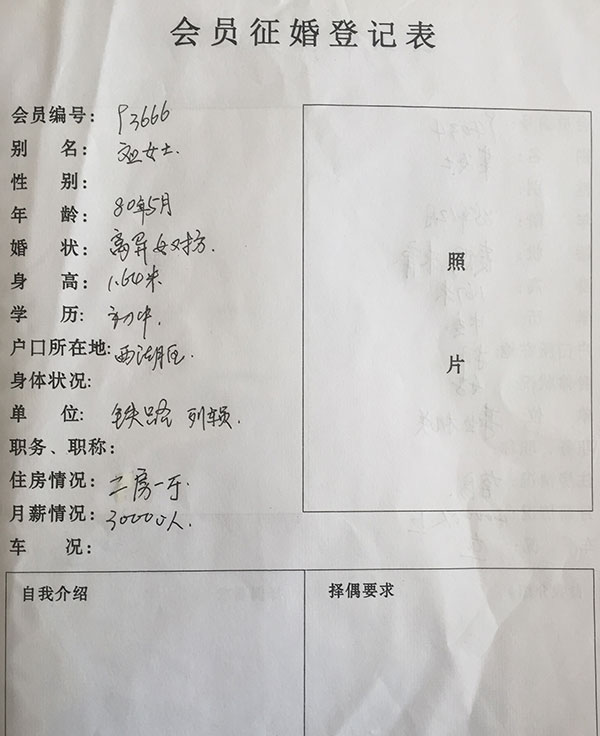 会员征婚登记表
会员编号: P3666
别 名: 女士.
性 别:
年 龄: 80年5月
婚 状: 离异女对方.
身 高: 1.60米
学 历: 初中.
户口所在地: 西湖区.
身体状况:
单 位: 铁路 列车员.
职务、职称:
住房情况: 二房一厅.
月薪情况: 3000
车 况:
照
片
自我介绍
择偶要求